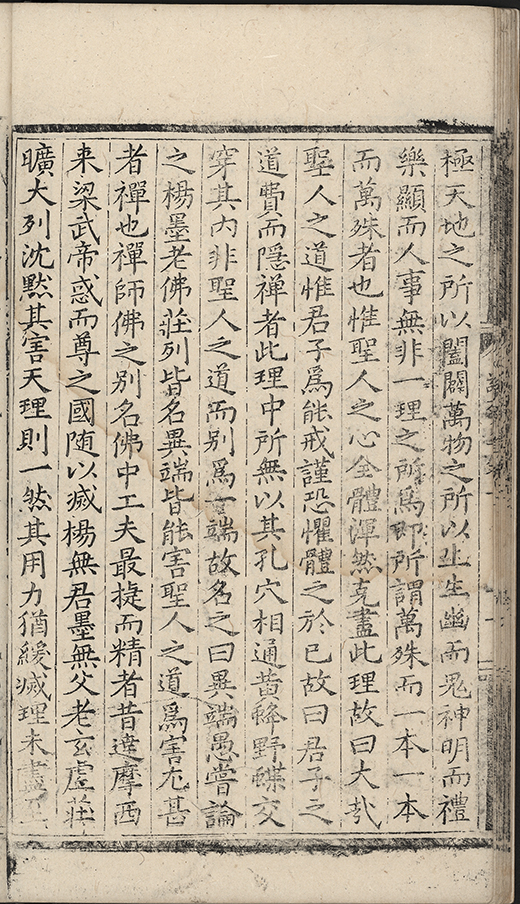 極天地之所以闔闢萬物之所以生生幽而鬼神明而禮
樂顯而人事無非一理之所爲卽所謂萬殊而一本一本
而萬殊者也惟聖人之心全體渾然克盡此理故曰大哉
聖人之道惟君子爲能戒謹恐懼體之於已故曰君子之
道費而隱禅者此理中所無以其孔穴相通昔
野蝶交
穿其內非聖人之道而別爲一端故名之曰異端愚嘗論
之楊墨老佛莊列皆名異端皆能害聖人之道爲害尤甚
者禪也禪師佛之别名佛中工夫最捷而精者昔達摩西
来梁武帝惑而尊之國随以滅楊無君墨無父老玄虛莊
曠大列沈默其害天理則一然其用力猶緩滅理未盡至